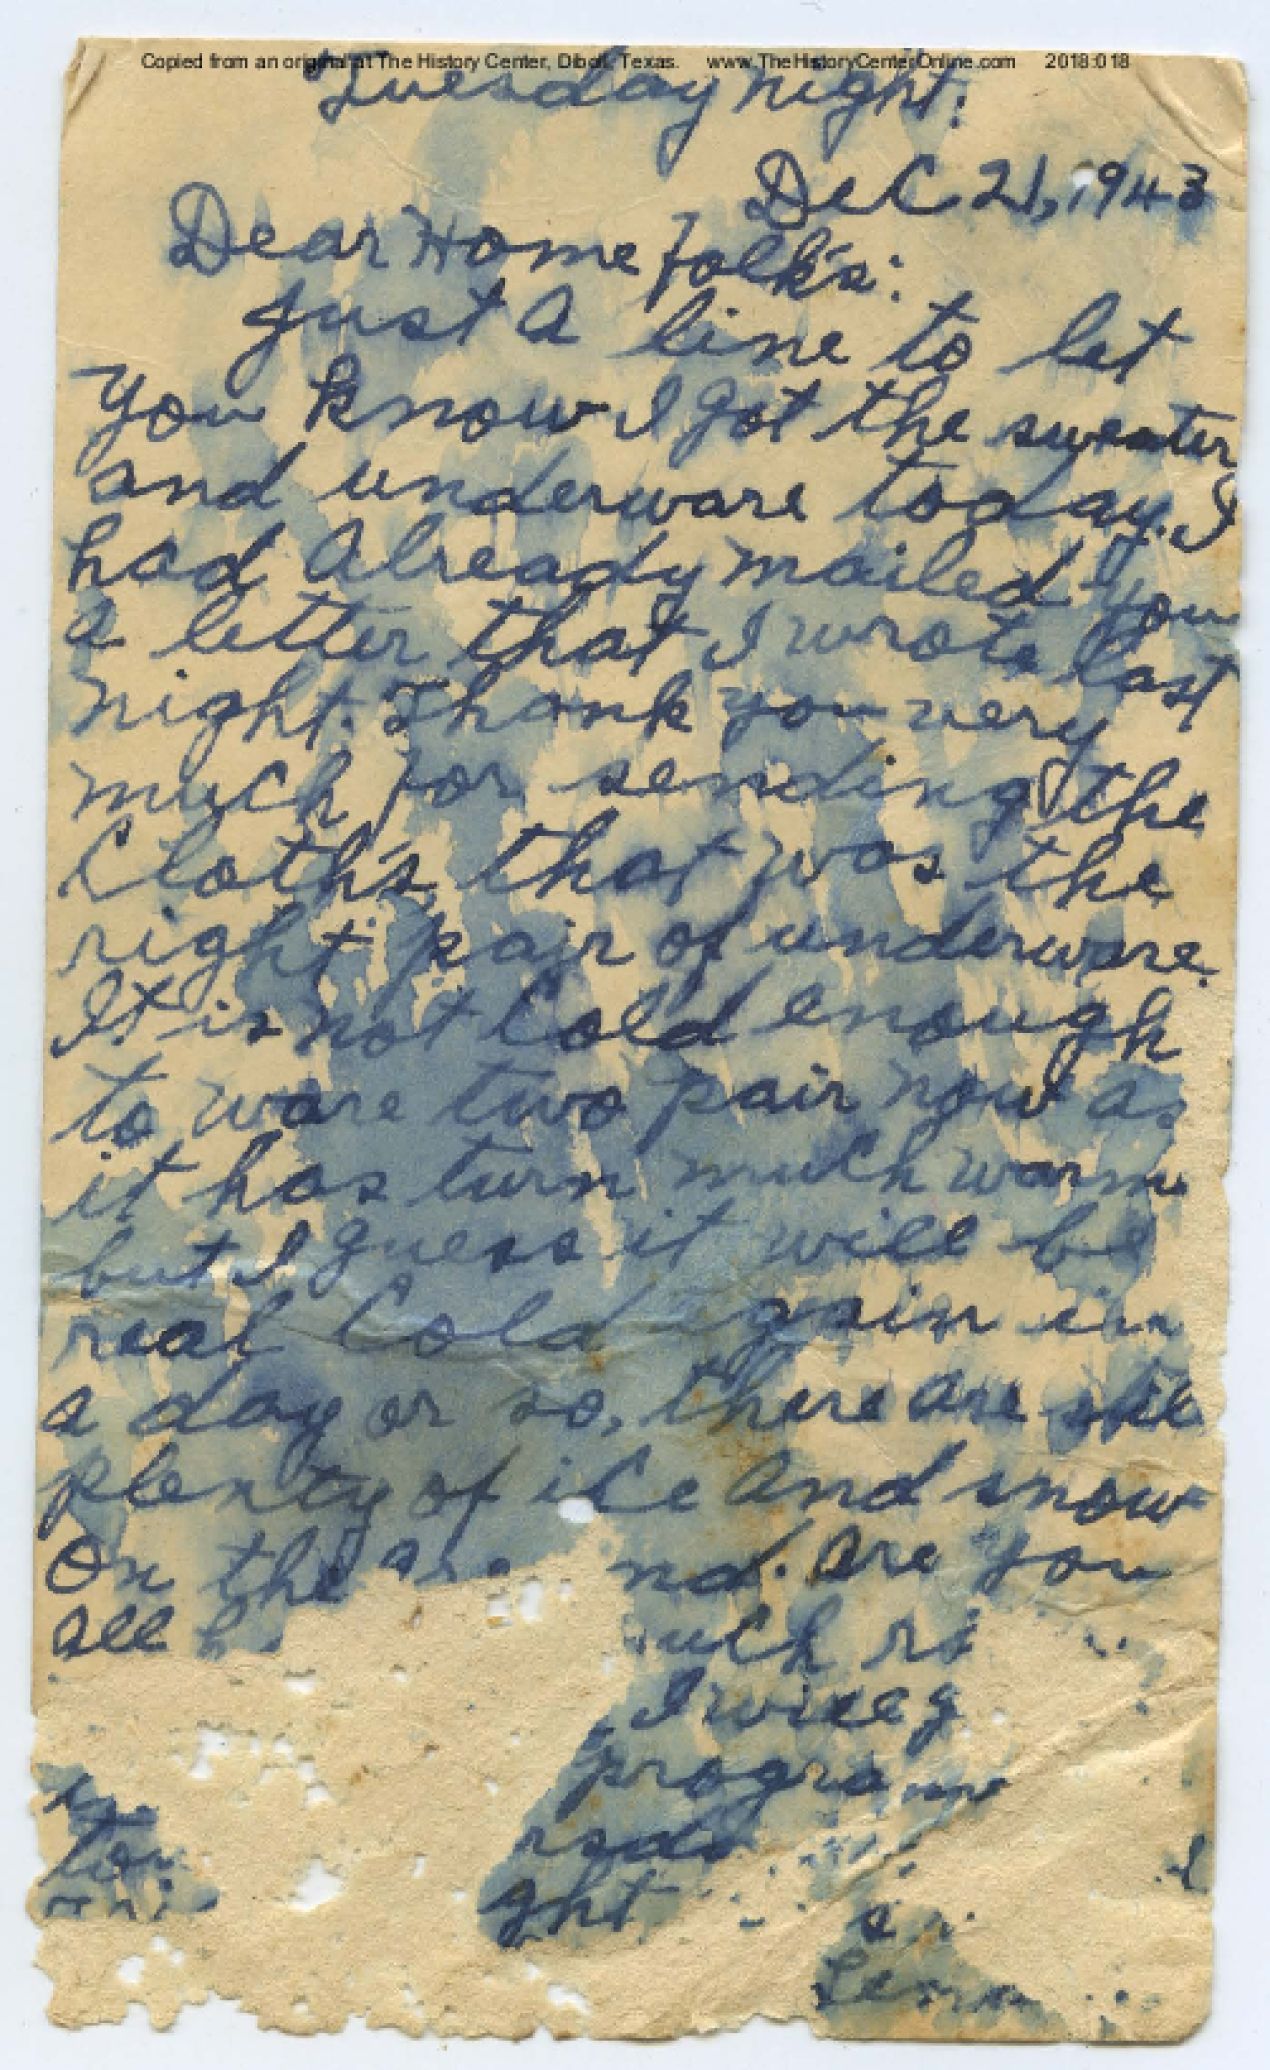 Copied from an original at The History Center, Diboll, Texas. www.TheHistoryCenterOnline.com 2018:018
Tuesday night.
Dec 21, 1943
Dear Home folk's:
Just a line to let
you know I got the sweater
and underware today. I
had already mailed you
a letter that I wrote last
night. Thank you very
much for sending the
Cloth's, that was the
right pair of underware.
It is not Cold enough
to ware two pair now as
it has turn much warm
but I guess it will be
real Cold again in
a day or so, there are still
plenty of ice and snow
on the nd. are you
all uch
I will g
program
ght